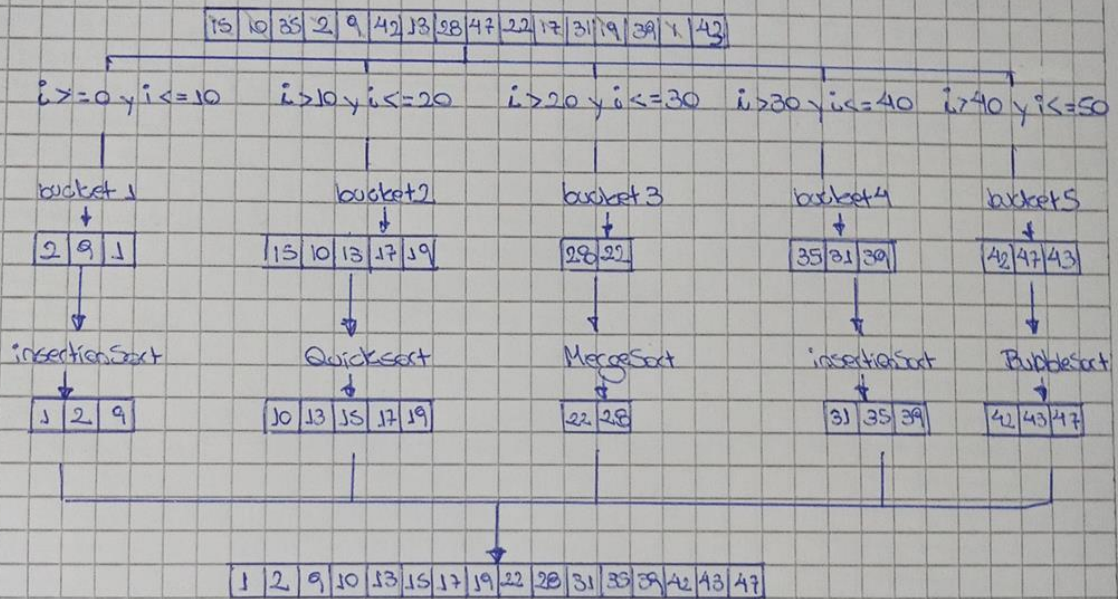 15 10 35 2 9 42 13 28 47 22 17 31 19 39 1 43
i>=0 y i<=10 i>10 y i<=20 i>20 y i<=30 i>30 y i<=40 i>40 y i<=50
bucket1 bucket2 bucket3 bucket4 bucket5
2 9 1 15 10 13 17 19 28 22 35 31 39 42 47 43
insertionSort Quicksort MergeSort insertionSort BubbleSort
1 2 9 10 13 15 17 19 22 28 31 35 39 42 43 47
1 2 9 10 13 15 17 19 22 28 31 35 39 42 43 47